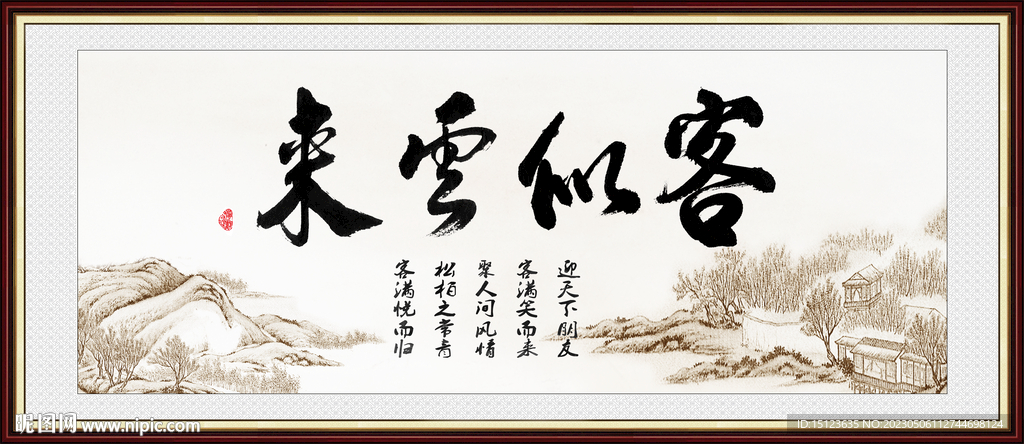 客似雲来
迎天下朋友
客满笑而来
聚人间风情
松柏之常青
客满悦而归
昵图网 www.nipic.com
ID:15123635 NO:20230506112744698124